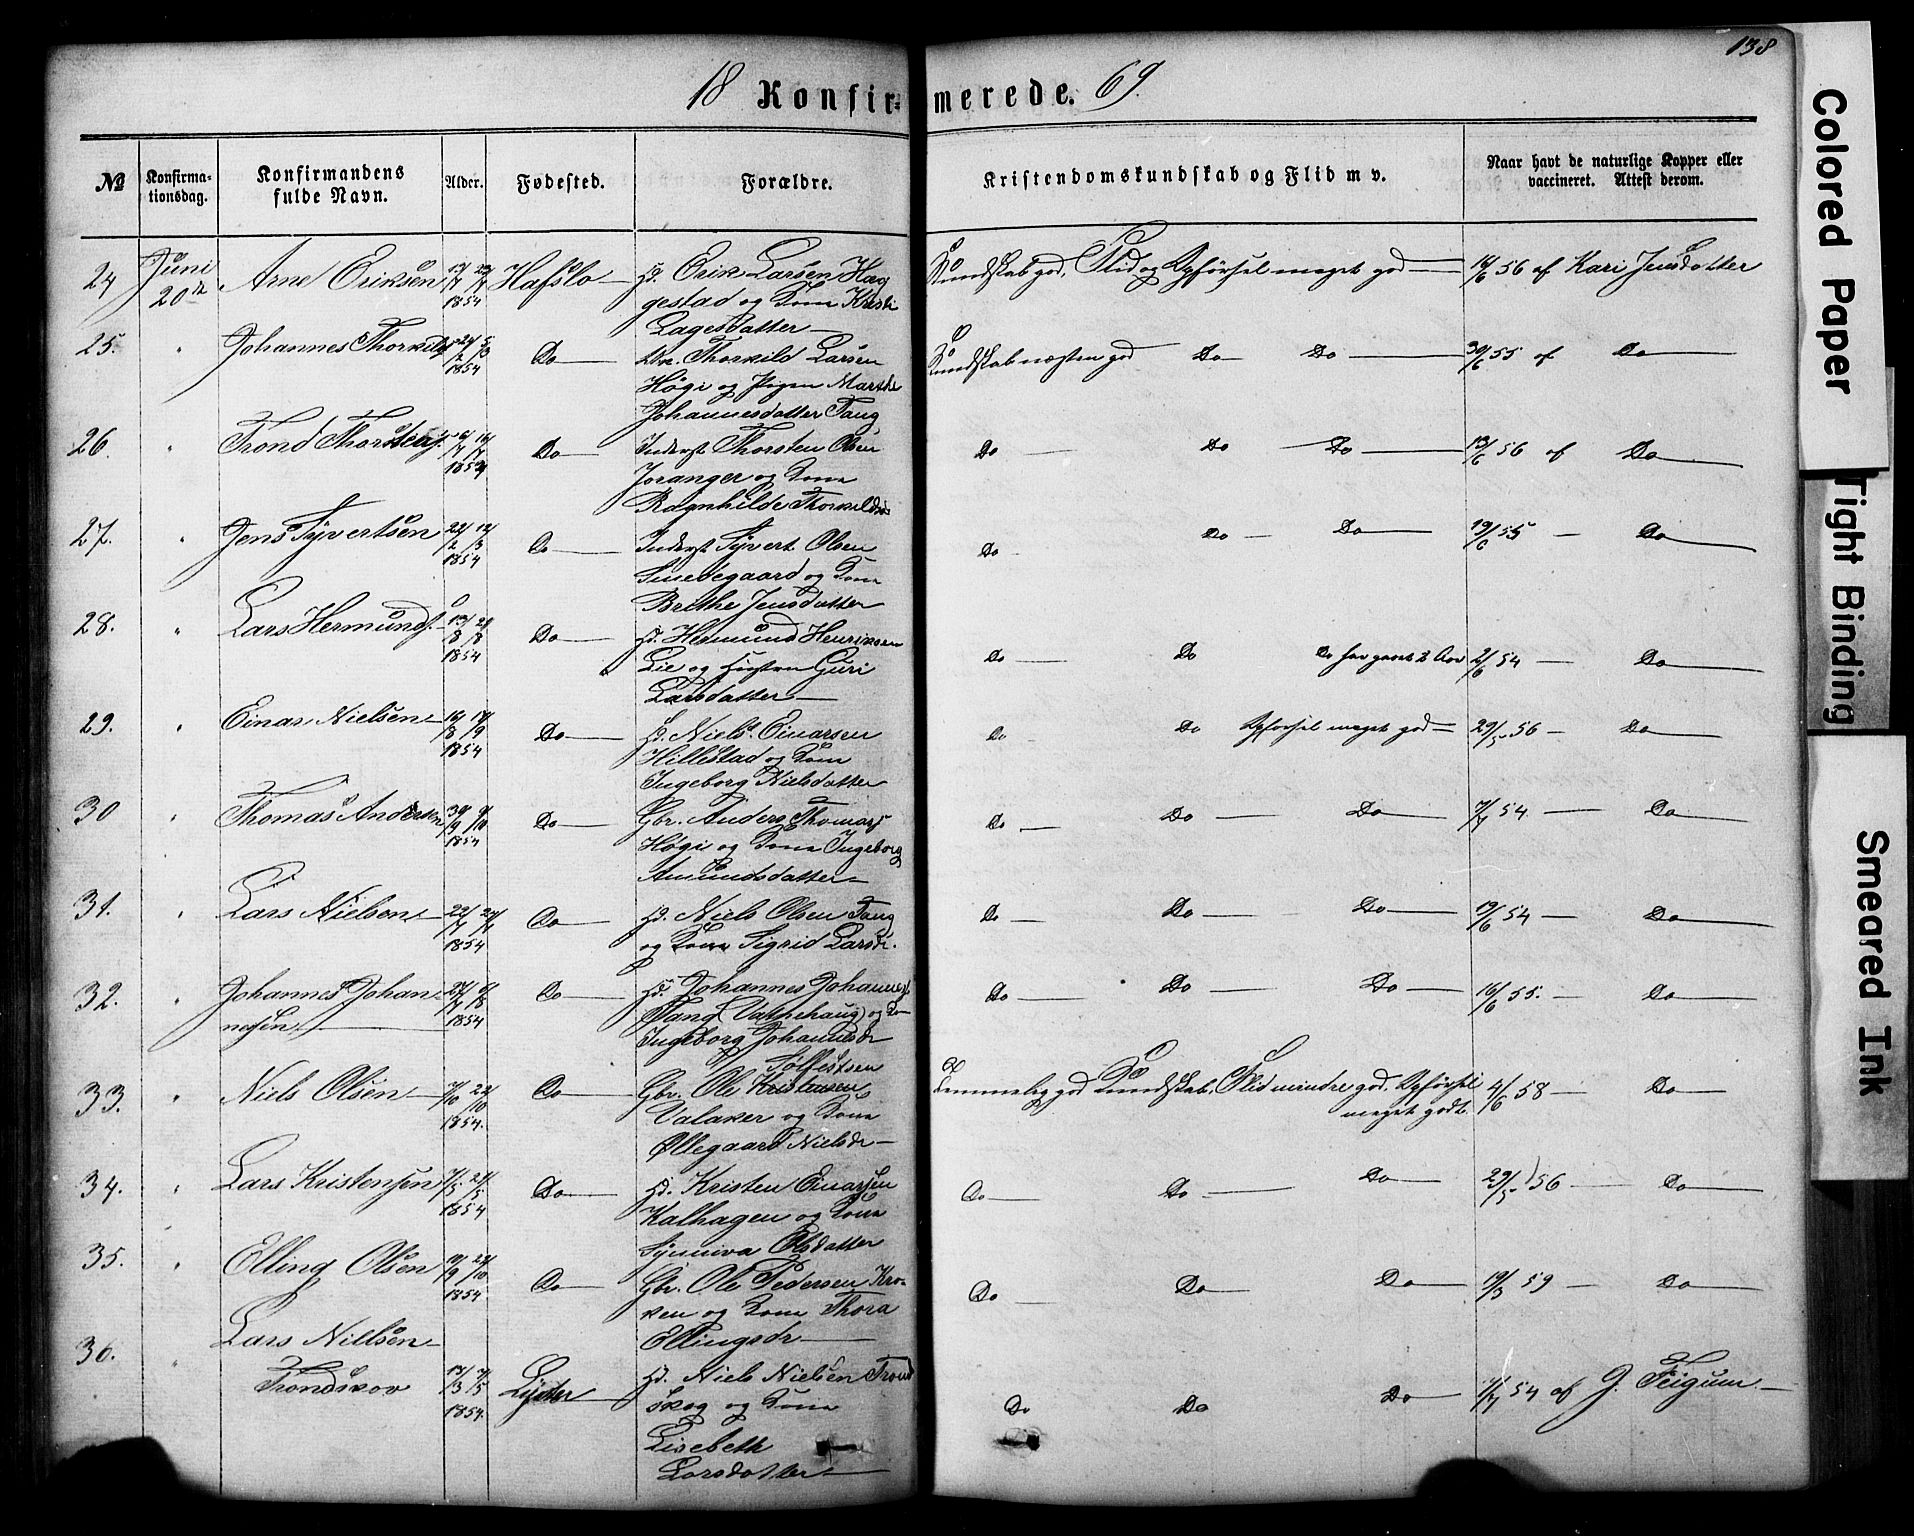 138
18 Konfir= merede. 69.
№ Konfirma- tionsdag. Konfirmandens fulde Navn. Alder. Fødested. Forældre. Kristendomskundskab og Flid m v. Naar havt de naturlige Kopper eller vaccineret. Attest derom.
24 Juni 20de Arne Eriksen 1854 Hafslo Erik Larsen Hag Kundskab god, Flid og Opførsel meget god 56 af Kari Jensdatter
gestad og Kone Kristi
Lagesdatter
25. " Johannes Thorkilds 1854 Do Thorkild Larsen Kundskab næsten god Do Do 30/6 55 af Do
Høgi og Pigen Marthe
Johannesdatter Tang
26. " Trond Thorstens. 1854 Do Inderst Thorsten Olsen Do Do Do 13/6 56 af Do
Joranger og Kone
Ragnhilde Thorkildsd
27. " Jens Syvertsen 22/2 12/3 1854 Do Inderst Syvert Olsen Do Do Do 19/6 55 Do
Smedegaard og Kone
Brithe Jensdatter
28. " Lars Hermunds. 13/8 1854 Do Hermund Henriksen Do Do Do har gaaet 2 Aar 2/6 54 Do
Lie og Hustru Guri
Larsdatter
29. " Einar Nielsen 1854 Do Niels Einarsen Do Do Opførsel meget god 29/5 56 Do
Hillestad og Kone
Ingeborg Nielsdatter
30 " Thomas Andersen 30/9 1854 Do Gbr. Anders Thomass Do Do Do 7/7 54 Do
Høgi og Kone Ingeborg
Amundsdatter
31. " Lars Nielsen 1854 Do Niels Olsen Tang Do Do Do 19/6 54 Do
og Kone Sigrid Larsd.
32. " Johannes Johan- 1854 Do Johannes Johannes Do Do Do 16/6 55. Do
nesen Tang (Vathehaug) og Ko
Ingeborg Johannesdr
Sølfestsen
33. " Niels Olsen 7/10 22/10 1854. Do Gbr. Ole Kristensen Temmelig god Kundskab, Flid mindre god. Opførsel 4/6 58 Do
Valaker og Kone meget godt.
Øllegaard Nielsdr
34. " Lars Kristensen 1854 Do Kristen Einarsen Do Do Do 29/5 56 Do
Kalhagen og Kone
Synniva Olsdatter
35. " Elling Olsen 1854 Do Gbr. Ole Pedersen Kro- Do Do Do 19/3 59 Do
ken og Kone Thora
Ellingsdr
36. " Lars Nielsen
Trondskov 13/3 7/5 1854. Lyster Niels Nielsen Trond Do Do Do 54 af G. Feigum
skog og Kone
Lisebeth
Larsdatter
Colored Paper
Tight Binding
Smeared Ink